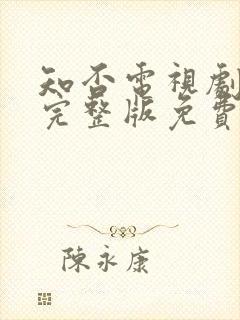 知否電視劇
完整版免費
陳永康